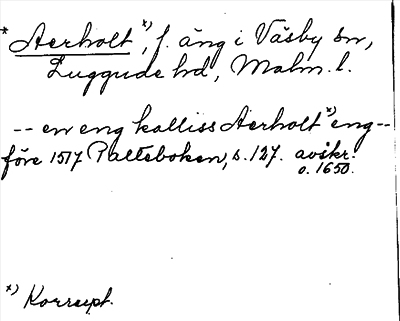 * Aerholt x), f. äng i Väsby sn,
Luggude hd, Malm. l.
-- en eng kalliss Aerholt x) eng --
före 1517 Palteboken, s. 127. avskr.
o. 1650.
x) Korrupt.